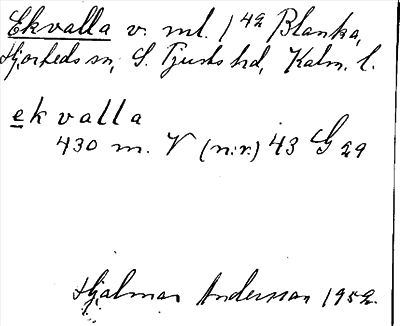 Ekvalla v. ml. 1 42 Blanka,
Hjorteds sn, S. Tjusts hd, Kalm. l.
ekvalla
430 m. V (n:r) 43 G 29
Hjalmar Andersson 1952.